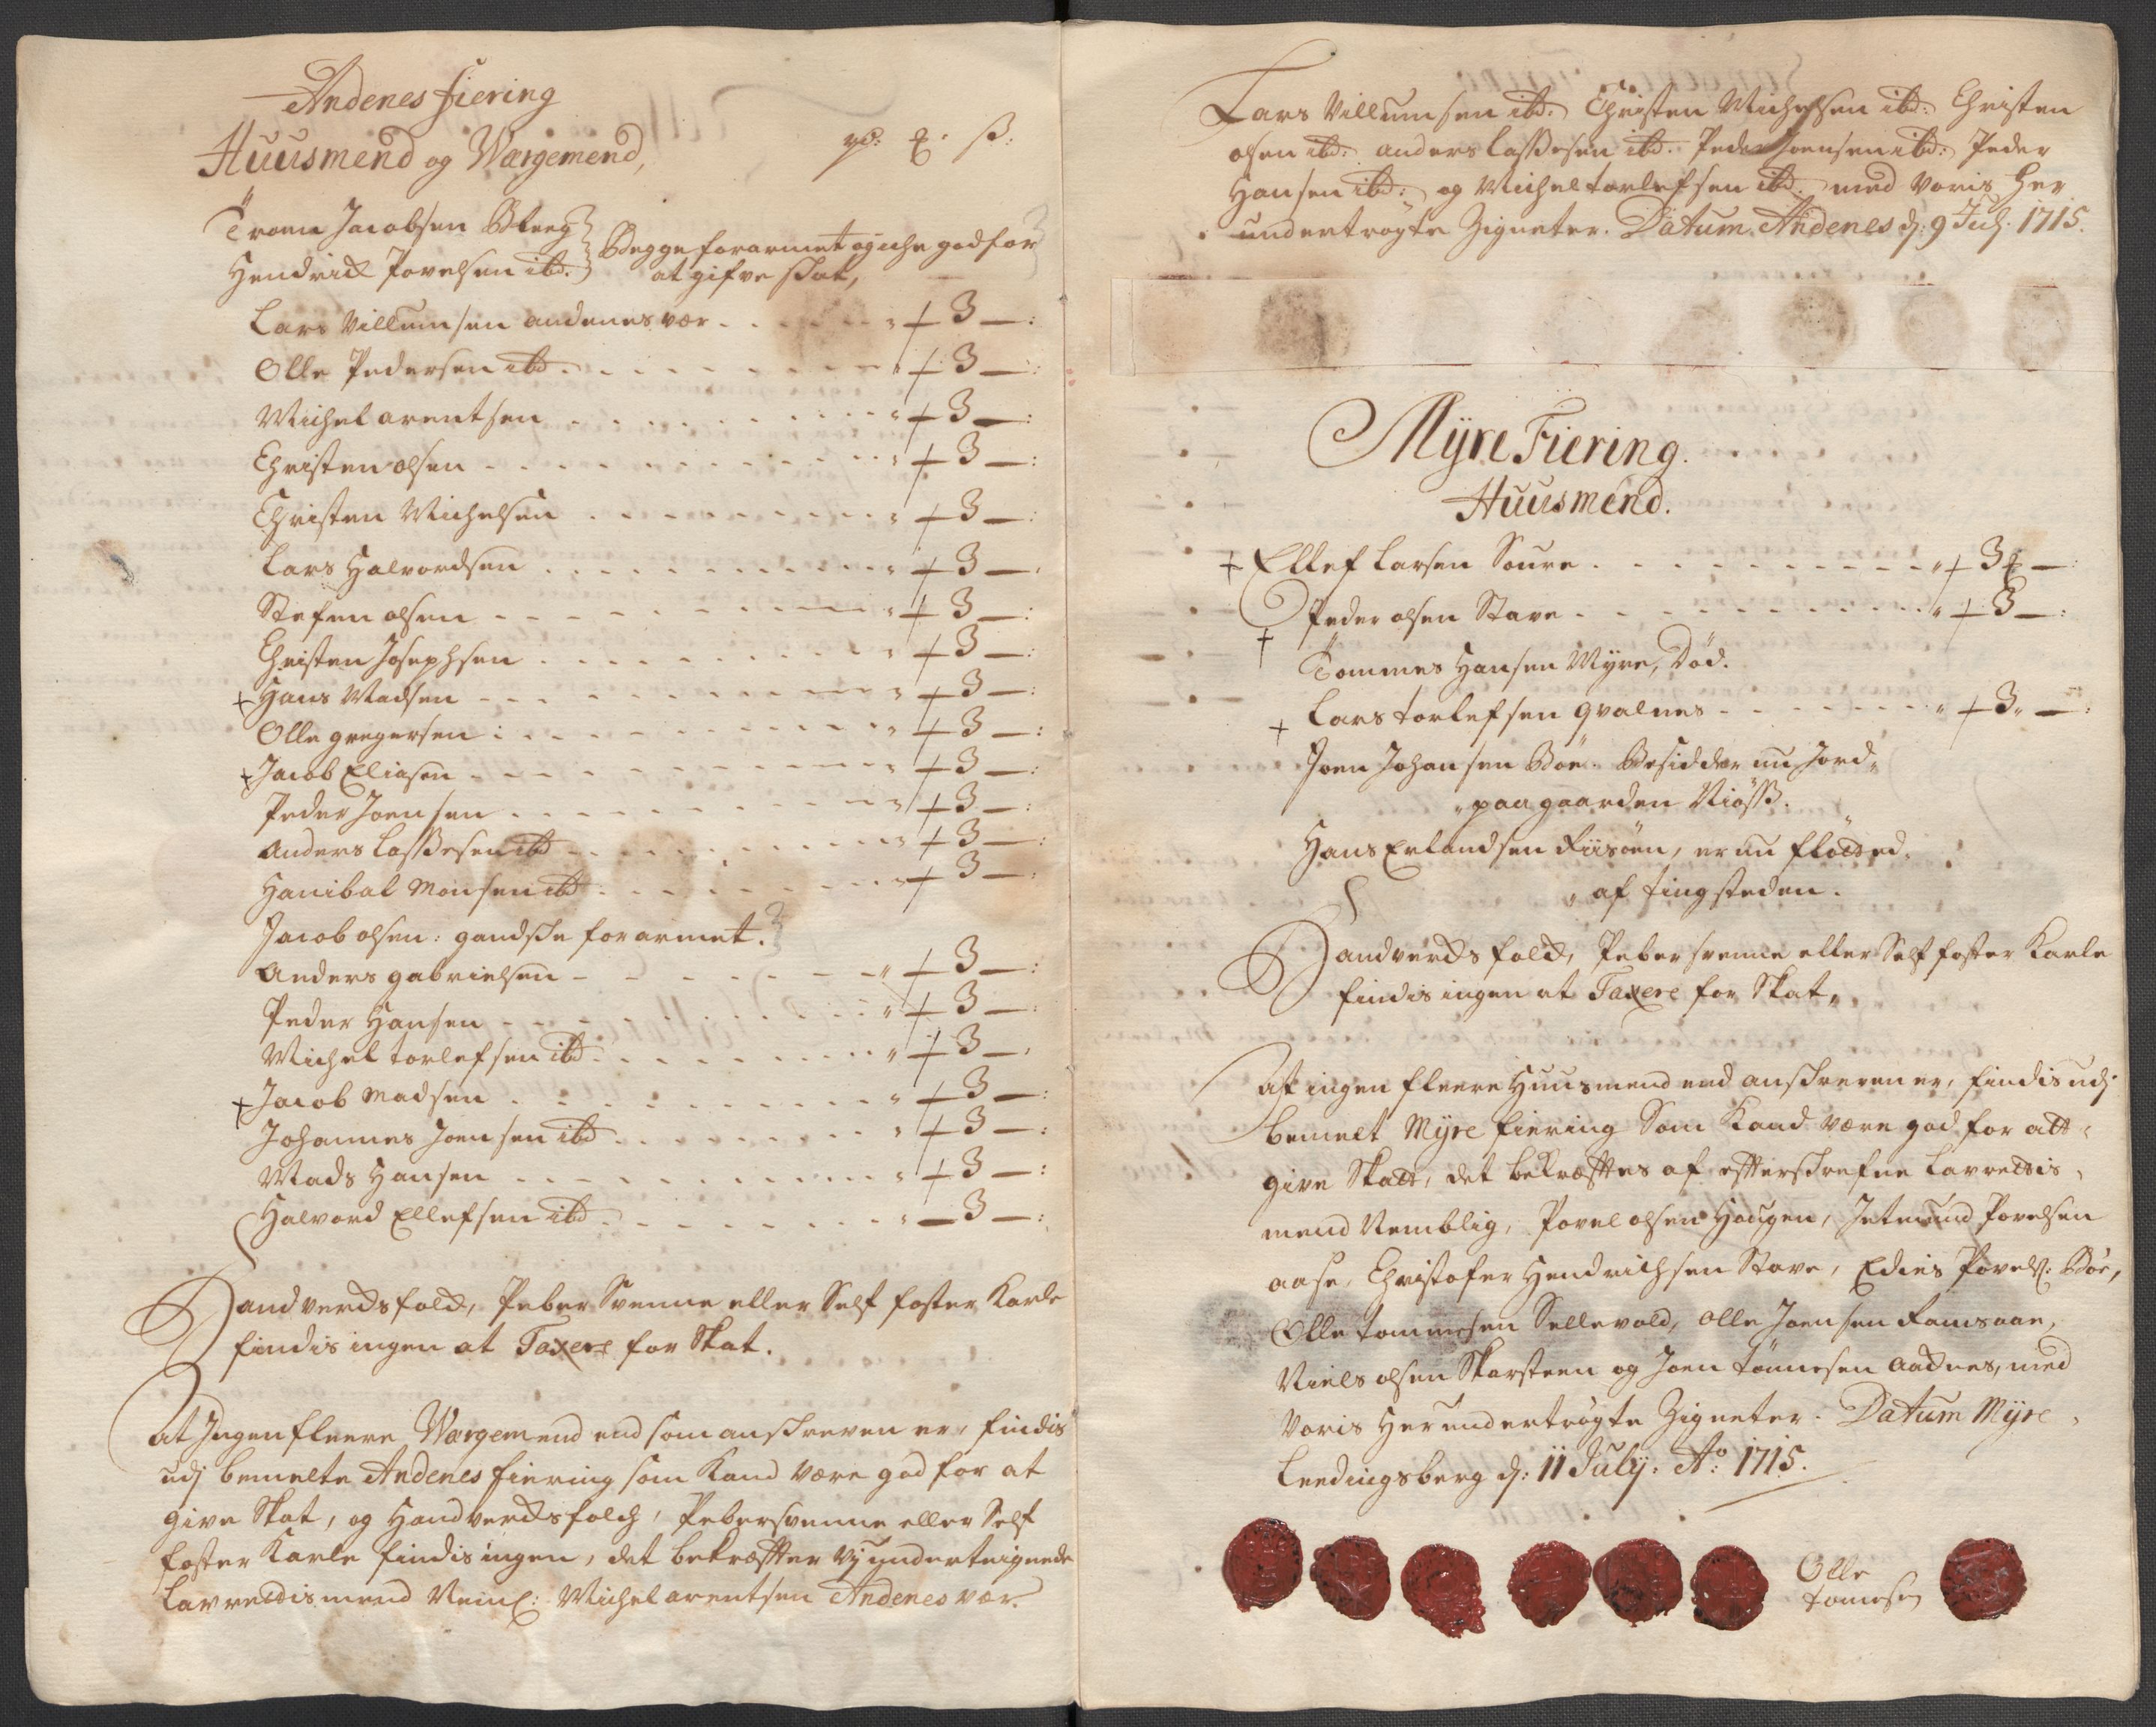 Andenes fiering
Huusmend og Wærgemend,
Troen Jacobsen Bleeg Begge forarmet og iche god for
Hendrich Povelsen ibd. at gifve skat,
Lars Villumsen andenes vær - 3 -
Olle Pedersen ibd - 3 -
Michel arentsen - 3 -
Christen olsen - 3 -
Christen Michelsen - 3 -
Lars Halvordsen - 3 -
Stefen olsen - 3 -
Christen Josephsen - 3 -
+ Hans Madsen - 3 -
Olle gregersen - 3 -
+ Jacob Eliasen - 3 -
Peder Joensen - 3 -
Anders Lassesen ibd - 3 -
Hanibal Monsen ibd - 3 -
Jacob olsen: gandske forarmet.
Anders gabrielsen - 3 -
Peder Hansen - 3 -
Michel torlefsen ibd - 3 -
+ Jacob Madsen - 3 -
Johannes Joensen ibd - 3 -
Mads Hansen - 3 -
Halvord Ellefsen ibd - 3 -
Handverdsfold, Peber Svenne eller Self foster Karle
findis ingen at Taxere for Skat.
At Ingen fleere Wærgemend end som anskreven er, findis
udj bemelte Andenes fiering som Kand være god for at
give Skat, og Handverdsfolch, Pebersvenne eller Self
foster Karle findis ingen, det bekræffter Vj underteignede
Lavrettismend Neml: Michel arentsen Andenes vær.
Lars Villumsen ibd: Christen Michelsen ibd: Christen
olsen ibd: anders Lassesen ibd. Peder Joensen ibd: Peder
Hansen ibd: og Michel torlefsen ibd. med voris her
undertrögte Zigneter. Datum Andenes d: 9 Julj. 1715.
Myre Fiering.
Huusmend.
+ Ellef Larsen Soure - 3 -
Peder olsen Stave - 3 -
+ Tommes Hansen Myre, Död.
+ Lars torlefsen qvalnes - 3 -
Joen Johansen Böe. Besidder nu Jord
paa gaarden Niöss.
Hans Erlandsen Riisöen, er nu flötted
af tingsteden.
Handverdsfold, Pebersvenne eller Self foster Karle
findis ingen at Taxere for Skat.
At ingen fleere Huusmend end anskreven er, findis udj
bemelt Myre fiering Som Kand være god for att
give Skatt, det bekræfftes af effterskrefne Lavrettis
mend Nemblig, Povel olsen Haugen, Jetmund Povelsen
aase, Christofer Hendrichsen Stave, Edies Povels: Böe,
Olle tommesen Sellevold, olle Joensen Ramsaae,
Niels olsen Skarsteen og Joen tönnesen Aadnes, med
Voris Her undertrögte Zigneter. Datum Myre
Leedingsberg d: 11 July. Ao. 1715.
Olle
tomesen